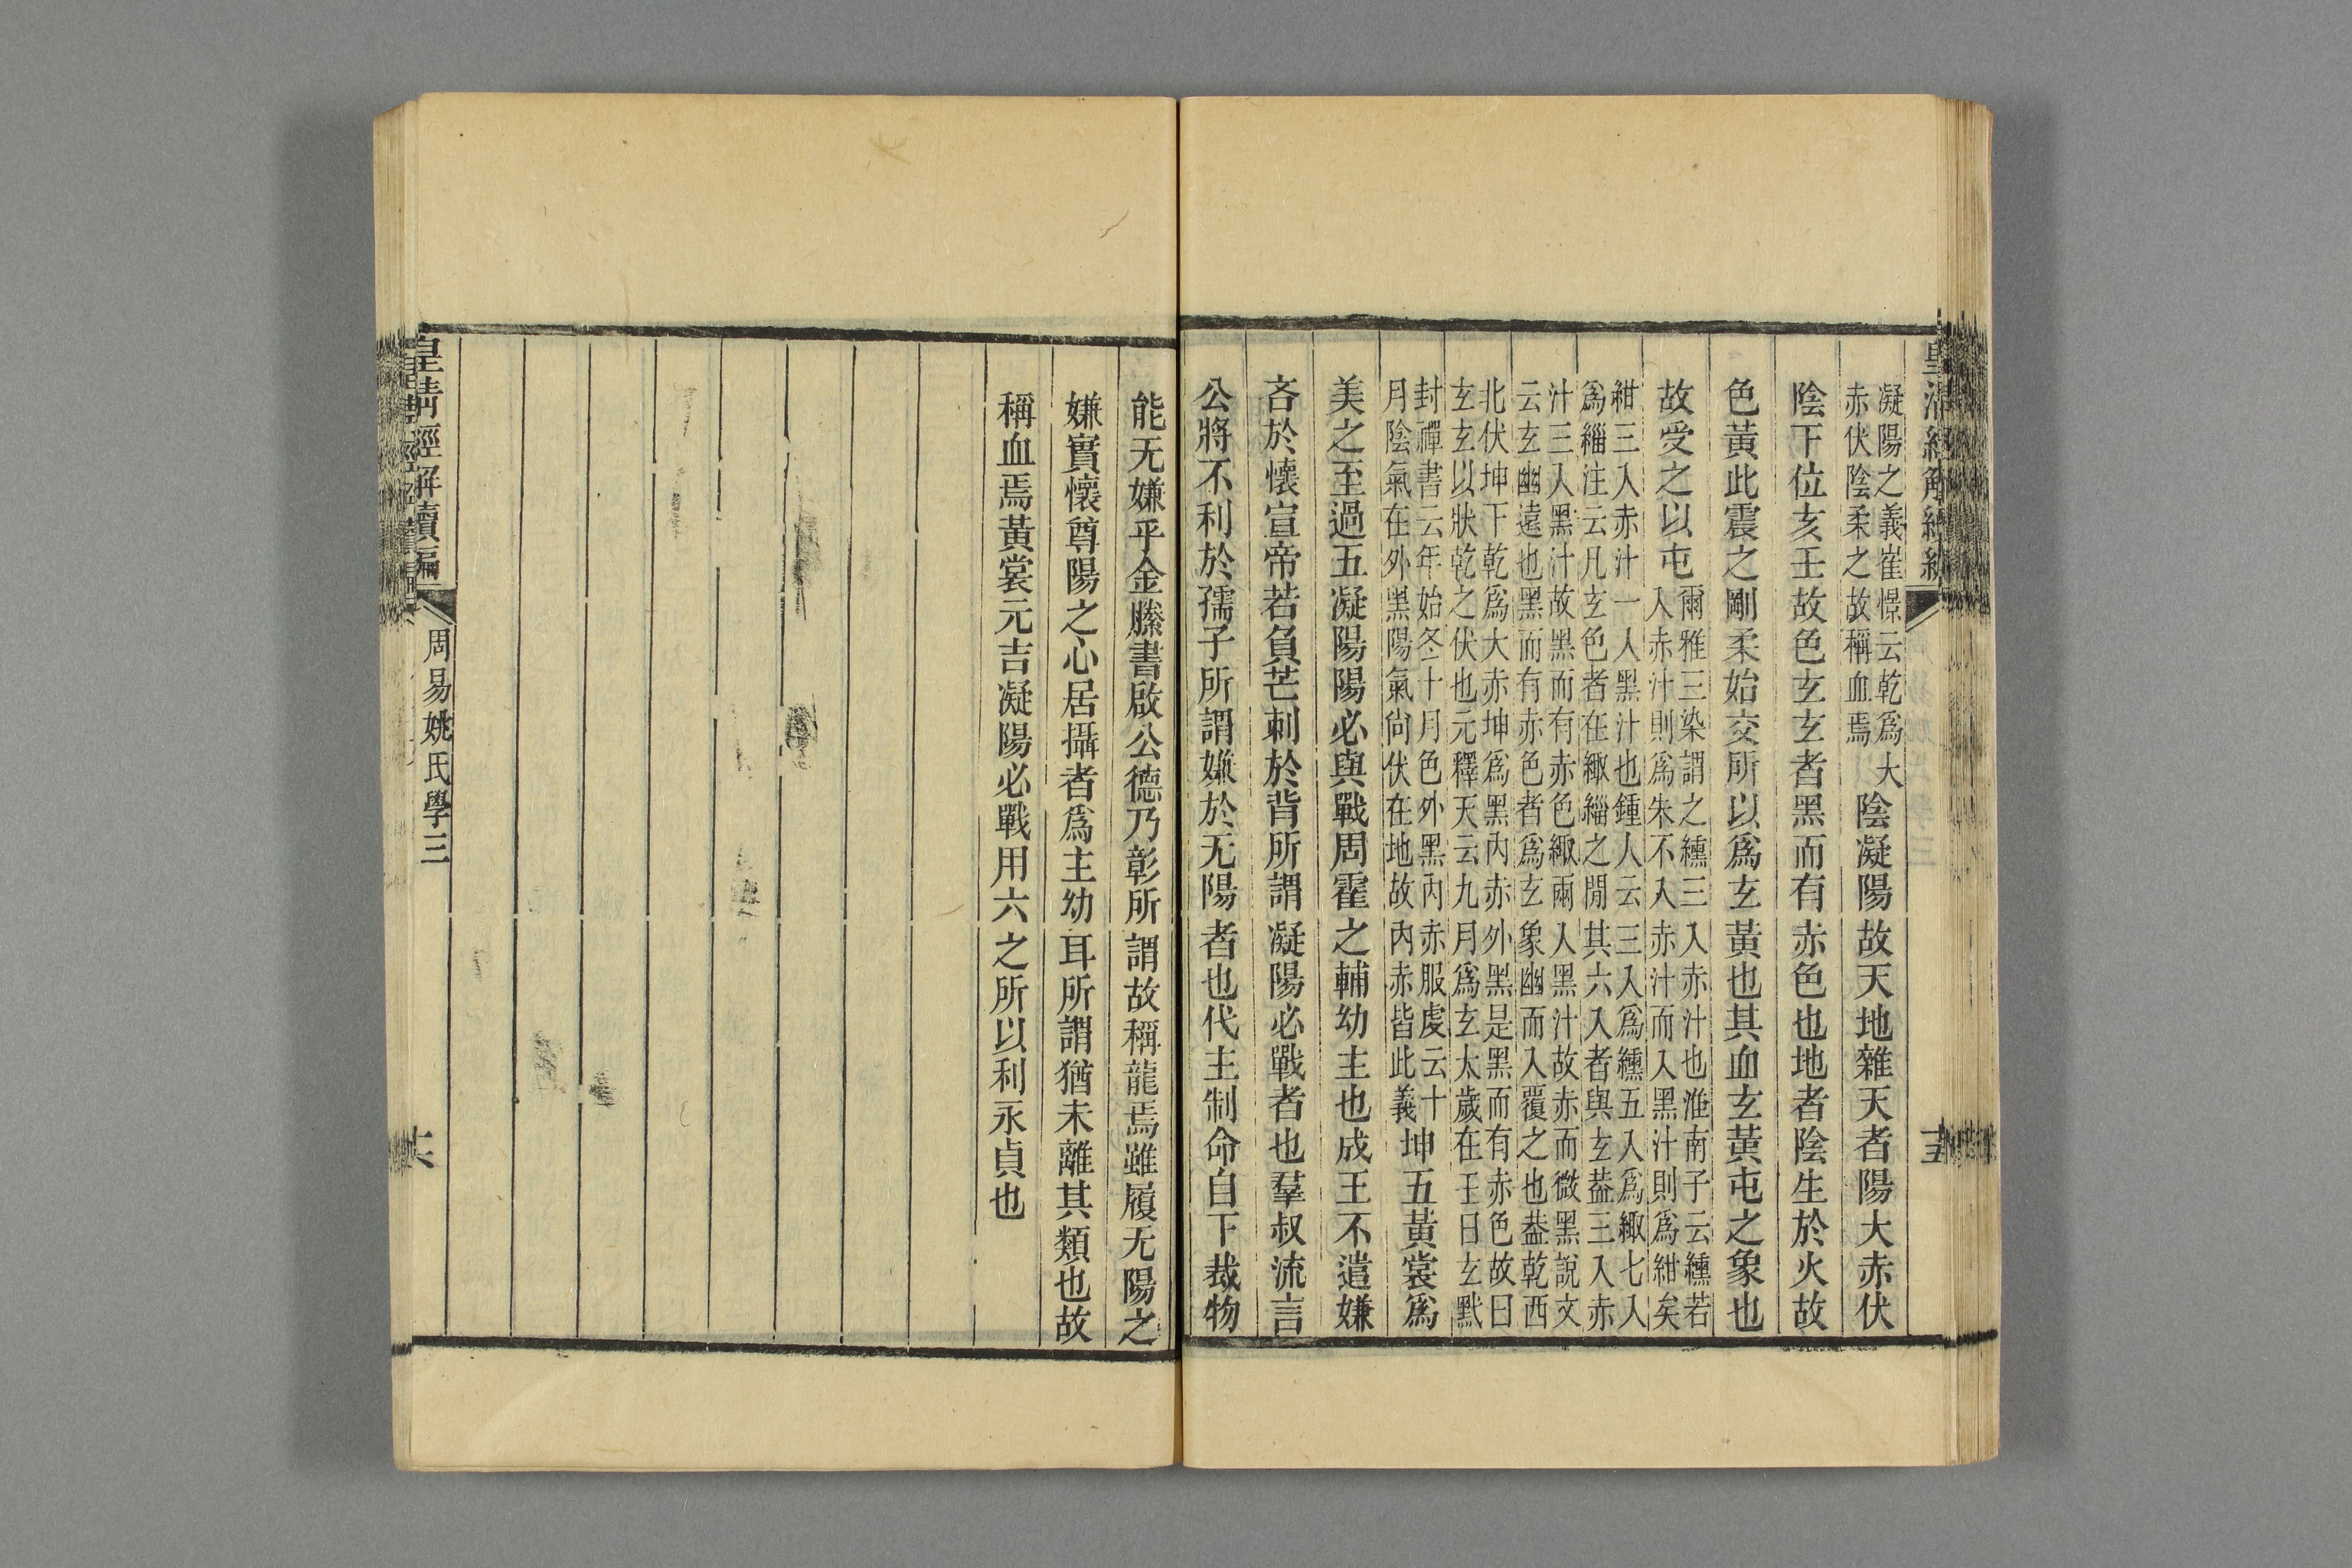 凝陽之義崔憬云乾爲大
赤伏陰柔之故稱血焉
陰凝陽故天地雜天者陽大赤伏
陰下位亥壬故色玄玄者黑而有赤色也地者陰生於火故
色黃此震之剛柔始交所以爲玄黃也其血玄黃屯之象也
故受之以屯
爾雅三染謂之纁三入赤汁也淮南子云纁若
入赤汁則爲朱不入赤汁而入黑汁則爲紺矣
紺三入赤汁一入黑汁也鍾人云三入爲纁五入爲緅七入
爲緇注云凡玄色者在緅緇之閒其六入者與玄葢三入赤
汁三入黑汁故黑而有赤色緅兩入黑汁故赤而微黑說文
云玄幽遠也黑而有赤色者爲玄象幽而入覆之也葢乾西
北伏坤下乾爲大赤坤爲黑內赤外黑是黑而有赤色故曰
玄玄以狀乾之伏也元釋天云九月爲玄太歲在壬曰玄黓
封禪書云年始冬十月色外黑內赤服虔云十
月陰氣在外黑陽氣尙伏在地故內赤皆此義
坤五黃裳爲
美之至過五凝陽陽必與戰周霍之輔幼主也成王不遣嫌
吝於懷宣帝若負芒刺於背所謂凝陽必戰者也羣叔流言
公將不利於孺子所謂嫌於无陽者也代主制命自下裁物
能无嫌乎金縢書啟公德乃彰所謂故稱龍焉雖履无陽之
嫌實懷尊陽之心居攝者爲主幼耳所謂猶未離其類也故
稱血焉黃裳元吉凝陽必戰用六之所以利永貞也
皇清經解續編
周易姚氏學三